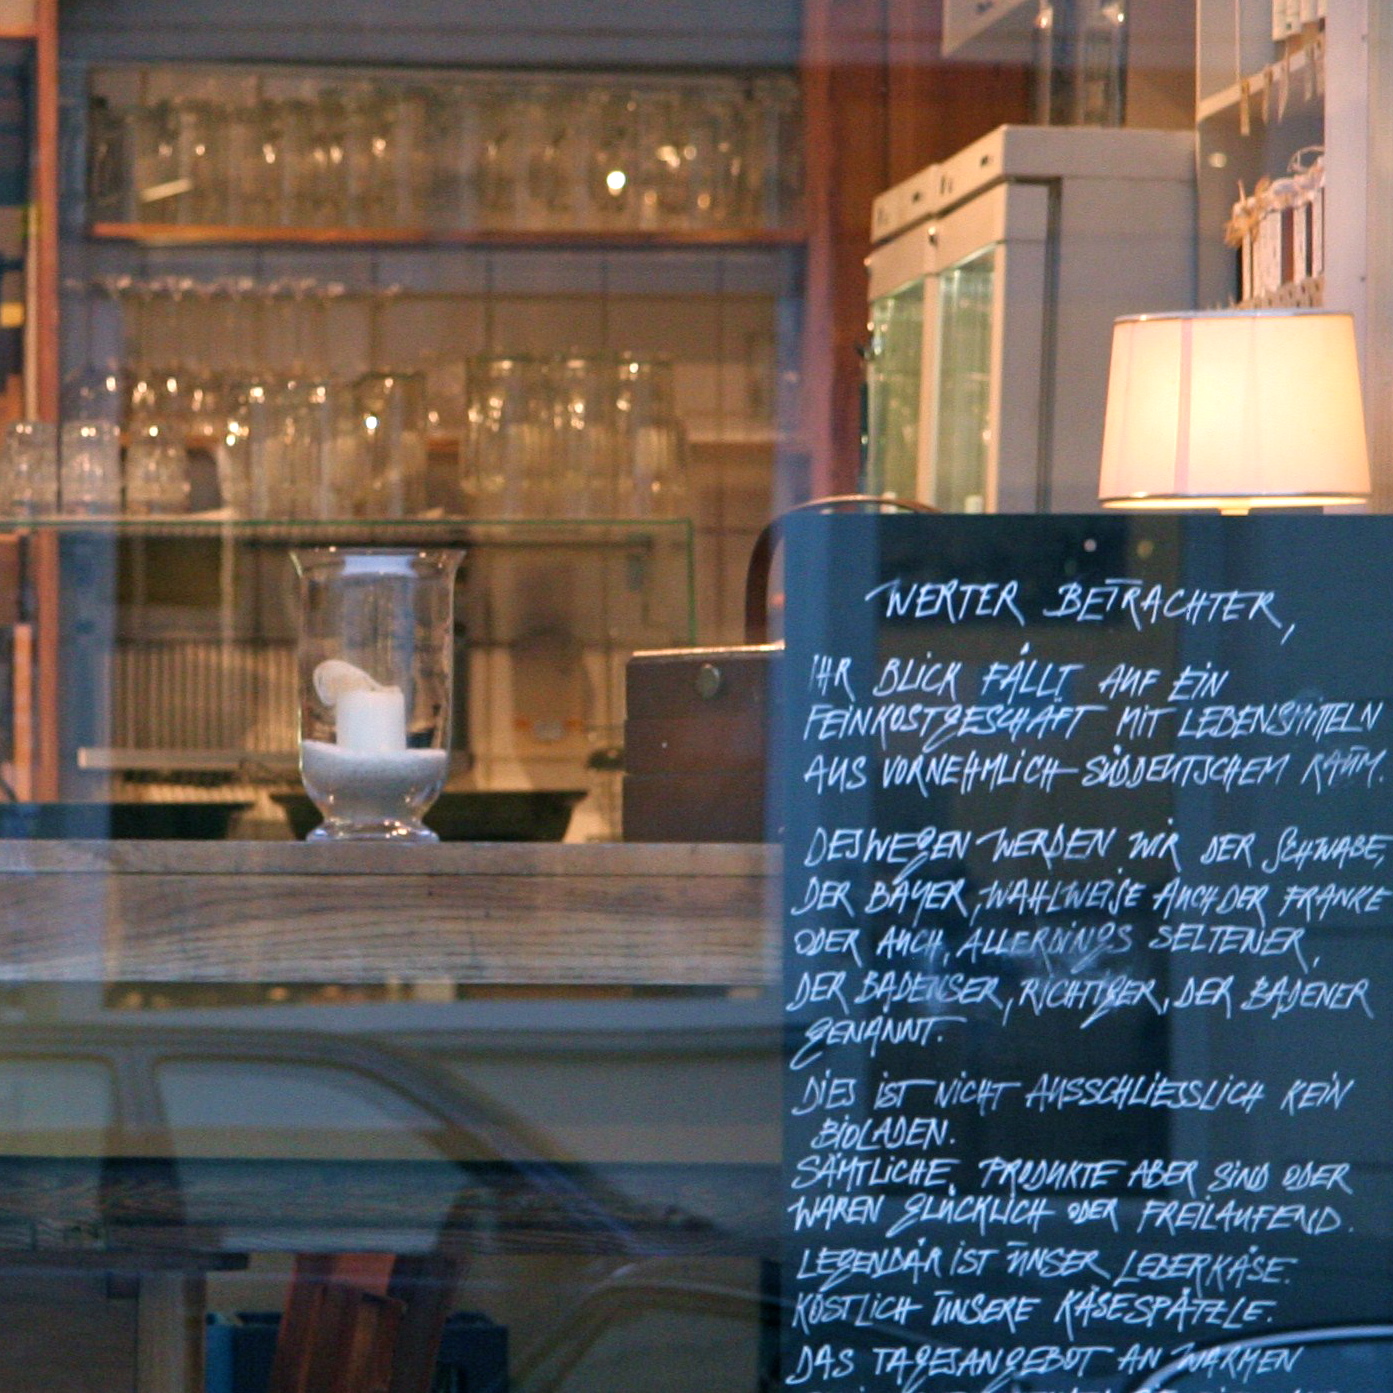 WERTER BETRACHTER,
IHR BLICK FÄLLT AUF EIN
FEINKOSTGESCHÄFT MIT LEBENSMITTELN
AUS VORNEHMLICH SÜDDEUTSCHEM RAUM.
DESWEGEN WERDEN WIR DER SCHWABE,
DER BAYER, WAHLWEISE AUCH DER FRANKE
ODER AUCH, ALLERDINGS SELTENER,
DER BADENSER, RICHTIGER, DER BADENER
GENANNT.
DIES IST NICHT AUSSCHLIESSLICH KEIN
BIOLADEN.
SÄMTLICHE PRODUKTE ABER SIND ODER
WAREN GLÜCKLICH ODER FREILAUFEND.
LEGENDÄR IST UNSER LEBERKÄSE.
KÖSTLICH UNSERE KÄSESPÄTZLE.
DAS TAGESANGEBOT AN WARMEN